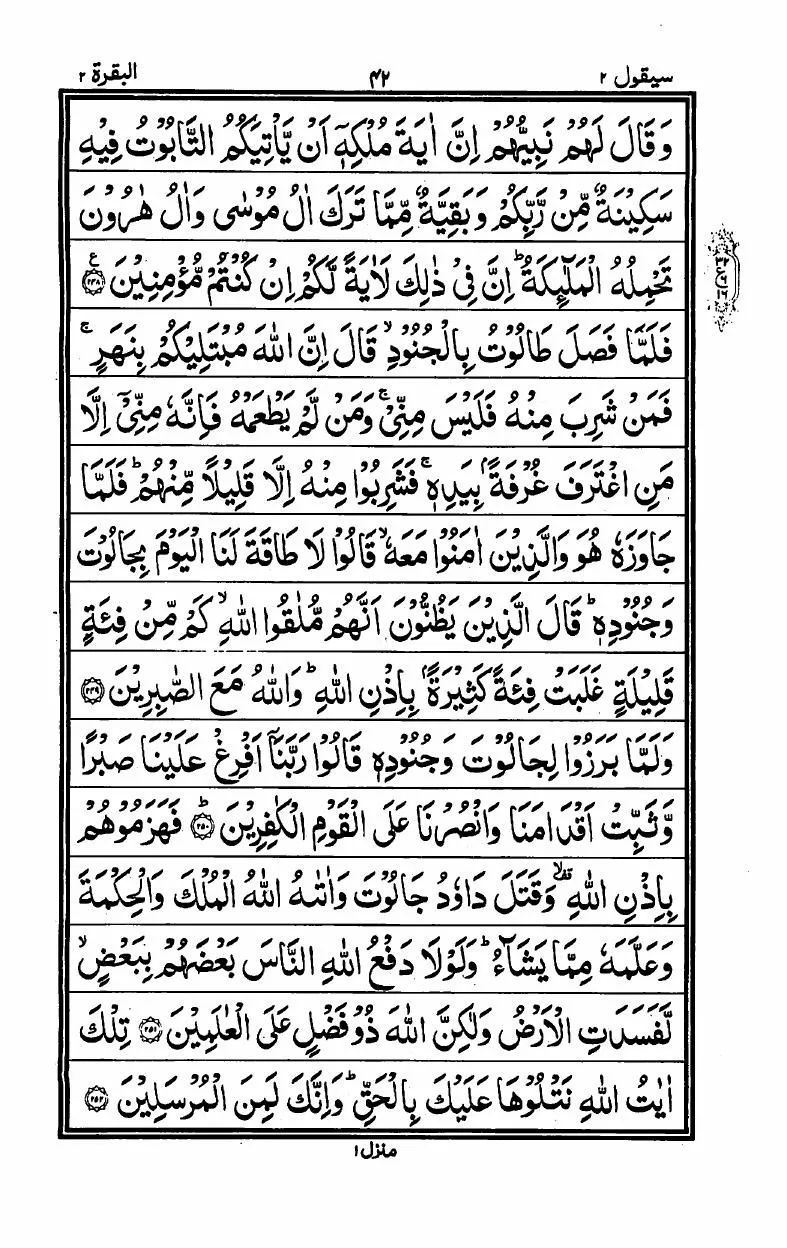 سيقول ٢ ٤٢ البقرة ٢
وَقَالَ لَهُمْ نَبِيُّهُمْ اِنَّ اٰيَةَ مُلْكِهٖٓ اَنْ يَّاْتِيَكُمُ التَّابُوْتُ فِيْهِ
سَكِيْنَةٌ مِّنْ رَّبِّكُمْ وَبَقِيَّةٌ مِّمَّا تَرَكَ اٰلُ مُوْسٰى وَاٰلُ هٰرُوْنَ
تَحْمِلُهُ الْمَلٰٓئِكَةُ ؕ اِنَّ فِيْ ذٰلِكَ لَاٰيَةً لَّكُمْ اِنْ كُنْتُمْ مُّؤْمِنِيْنَ ۝٢٤٨ ع
٣٢
ع
١٦
فَلَمَّا فَصَلَ طَالُوْتُ بِالْجُنُوْدِ ۙ قَالَ اِنَّ اللّٰهَ مُبْتَلِيْكُمْ بِنَهَرٍ ۚ
فَمَنْ شَرِبَ مِنْهُ فَلَيْسَ مِنِّيْ ۚ وَمَنْ لَّمْ يَطْعَمْهُ فَاِنَّهٗ مِنِّيْٓ اِلَّا
مَنِ اغْتَرَفَ غُرْفَةًۢ بِيَدِهٖ ۚ فَشَرِبُوْا مِنْهُ اِلَّا قَلِيْلًا مِّنْهُمْ ؕ فَلَمَّا
جَاوَزَهٗ هُوَ وَالَّذِيْنَ اٰمَنُوْا مَعَهٗ ۙ قَالُوْا لَا طَاقَةَ لَنَا الْيَوْمَ بِجَالُوْتَ
وَجُنُوْدِهٖ ؕ قَالَ الَّذِيْنَ يَظُنُّوْنَ اَنَّهُمْ مُّلٰقُوا اللّٰهِ ۙ كَمْ مِّنْ فِئَةٍ
قَلِيْلَةٍ غَلَبَتْ فِئَةً كَثِيْرَةًۢ بِاِذْنِ اللّٰهِ ؕ وَاللّٰهُ مَعَ الصّٰبِرِيْنَ ۝٢٤٩
وَلَمَّا بَرَزُوْا لِجَالُوْتَ وَجُنُوْدِهٖ قَالُوْا رَبَّنَآ اَفْرِغْ عَلَيْنَا صَبْرًا
وَّثَبِّتْ اَقْدَامَنَا وَانْصُرْنَا عَلَى الْقَوْمِ الْكٰفِرِيْنَ ۝٢٥٠ؕ فَهَزَمُوْهُمْ
بِاِذْنِ اللّٰهِ ۙ۫ وَقَتَلَ دَاوٗدُ جَالُوْتَ وَاٰتٰىهُ اللّٰهُ الْمُلْكَ وَالْحِكْمَةَ
وَعَلَّمَهٗ مِمَّا يَشَآءُ ؕ وَلَوْلَا دَفْعُ اللّٰهِ النَّاسَ بَعْضَهُمْ بِبَعْضٍ ۙ
لَّفَسَدَتِ الْاَرْضُ وَلٰكِنَّ اللّٰهَ ذُوْ فَضْلٍ عَلَى الْعٰلَمِيْنَ ۝٢٥١ تِلْكَ
اٰيٰتُ اللّٰهِ نَتْلُوْهَا عَلَيْكَ بِالْحَقِّ ؕ وَاِنَّكَ لَمِنَ الْمُرْسَلِيْنَ ۝٢٥٢
منزل ١